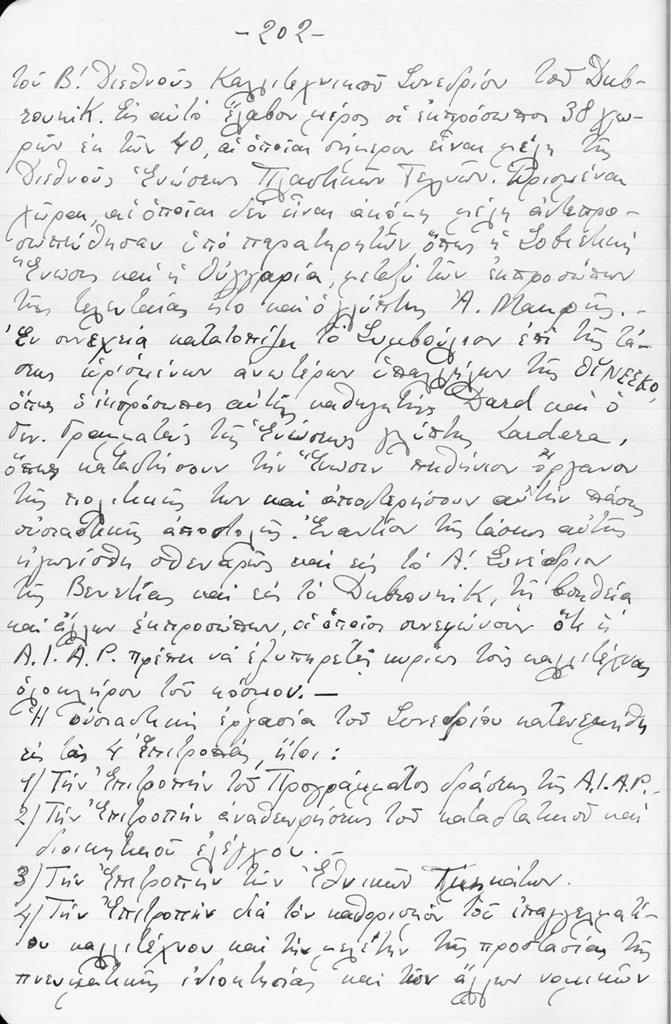 -202-
τοῦ Β΄. Διεθνοῦς Καλλιτεχνικοῦ Συνεδρίου τοῦ Dub-
rounik. Εἰς αὐτὸ ἔλαβον μέρος οἱ ἐκπρόσωποι 38 χω-
ρῶν ἐκ τῶν 40, αἱ ὁποῖαι σήμερον εἶναι μέλη τῆς
Διεθνοῦς Ἑνώσεως Πλαστικῶν Τεχνῶν. Ὡρισμέναι
χῶραι, αἱ ὁποῖαι δὲν εἶναι ἀκόμη μέλη ἀντεπρο-
σωπεύθησαν ὑπὸ παρατηρητῶν ὅπως ἡ Σοβιετικὴ
Ἕνωσις καὶ ἡ Οὑγγαρία, μεταξὺ τῶν ἐκπροσώπων
τῆς τελευταίας ἦτο καὶ ὁ γλύπτης Ἀ. Μακρῆς.-
Ἐν συνεχείᾳ κατατοπίζει τὸ Συμβούλιον ἐπὶ τῆς τά-
σεως ὡρισμένων ἀνωτέρων ὑπαλλήλων τῆς ΟΥΝΕΣΚΟ,
ὅπως ὁ ἐκπρόσωπος αὐτῆς καθηγητὴς Dard καὶ ὁ
Γεν. Γραμματεὺς τῆς Ἑνώσεως γλύπτης Lardera,
ὅπως καταστήσουν τὴν Ἕνωσιν πειθήνιον ὄργανον
τῆς πολιτικῆς των καὶ ἀποστερήσουν αὐτὴν πάσης
οὐσιαστικῆς ἀποστολῆς. Ἐναντίον τῆς τάσεως αὐτῆς
ἠγωνίσθη σθεναρῶς καὶ εἰς τὸ Α΄. Συνέδριον
τῆς Βενετίας καὶ εἰς τὸ Dubrounik, τῇ βοηθείᾳ
καὶ ἄλλων ἐκπροσώπων, οἱ ὁποῖοι συνεφώνουν ὅτι ἡ
A.I.A.P. πρέπει νὰ ἐξυπηρετῇ κυρίως τοὺς καλλιτέχνας
ὁλοκλήρου τοῦ κόσμου. —
Ἡ οὐσιαστικὴ ἐργασία τοῦ Συνεδρίου κατενεμήθη
εἰς τὰς 4 Ἐπιτροπάς, ἤτοι:
1) Τὴν Ἐπιτροπὴν τοῦ Προγράμματος δράσεως τῆς A.I.A.P.-
2) Τὴν Ἐπιτροπὴν ἀναθεωρήσεως τοῦ καταστατικοῦ καὶ
διοικητικοῦ ἐλέγχου. -
3) Τὴν Ἐπιτροπὴν τῶν Ἐθνικῶν Τμημάτων.
4) Τὴν Ἐπιτροπὴν διὰ τὸν καθορισμὸν τοῦ ἐπαγγελματί-
ου καλλιτέχνου καὶ τὴν μελέτην τῆς προστασίας τῆς
πνευματικῆς ἰδιοκτησίας καὶ τῶν ἄλλων νομικῶν